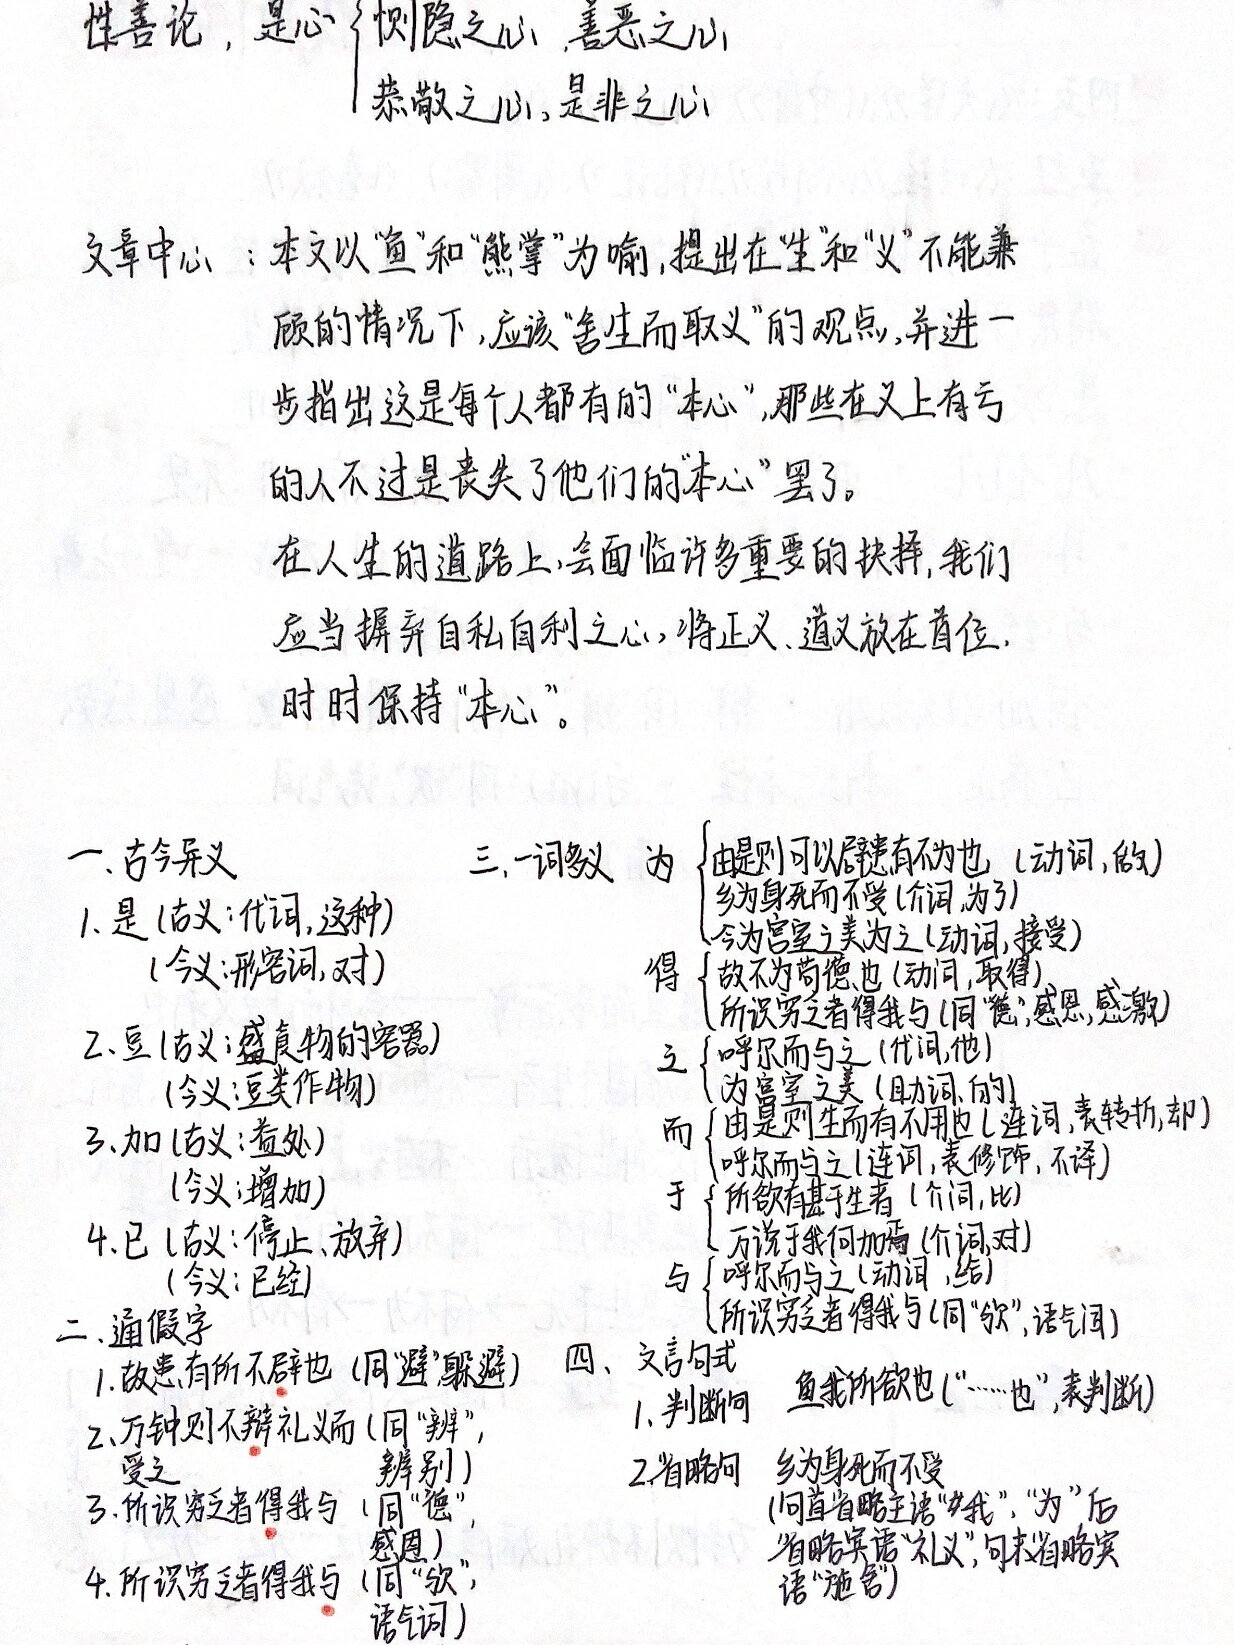 性善论，是心{恻隐之心、善恶之心
恭敬之心、是非之心
文章中心：本文以“鱼”和“熊掌”为喻,提出在“生”和“义”不能兼
顾的情况下,应该“舍生而取义”的观点,并进一
步指出这是每个人都有的“本心”,那些在义上有亏
的人不过是丧失了他们的“本心”罢了。
在人生的道路上,会面临许多重要的抉择,我们
应当摒弃自私自利之心,将正义、道义放在首位,
时时保持“本心”。
一、古今异义
1、是(古义:代词,这种)
(今义:形容词,对)
2、豆(古义:盛食物的容器)
(今义:豆类作物)
3、加(古义:益处)
(今义:增加)
4、已(古义:停止、放弃)
(今义:已经)
二、通假字
1、故患有所不辟也(同“避”,躲避)
2、万钟则不辩礼义而(同“辨”,
受之 辨别)
3、所识穷乏者得我与(同“德”,
感恩)
4、所识穷乏者得我与(同“欤”,
语气词)
三、一词多义 为{由是则可以辟患有不为也(动词,做)
乡为身死而不受(介词,为了)
今为宫室之美为之(动词,接受)
得{故不为苟得也(动词,取得)
所识穷乏者得我与(同“德”,感恩,感激)
之{呼尔而与之(代词,他)
为宫室之美(助词,的)
而{由是则生而有不用也(连词,表转折,却)
呼尔而与之(连词,表修饰,不译)
于{所欲有甚于生者(介词,比)
万钟于我何加焉(介词,对)
与{呼尔而与之(动词,给)
所识穷乏者得我与(同“欤”,语气词)
四、文言句式
1、判断句 鱼我所欲也(“……也”,表判断)
2、省略句 乡为身死而不受
(句首省略主语“我”,“为”后
省略宾语“礼义”,句末省略宾
语“施舍”)